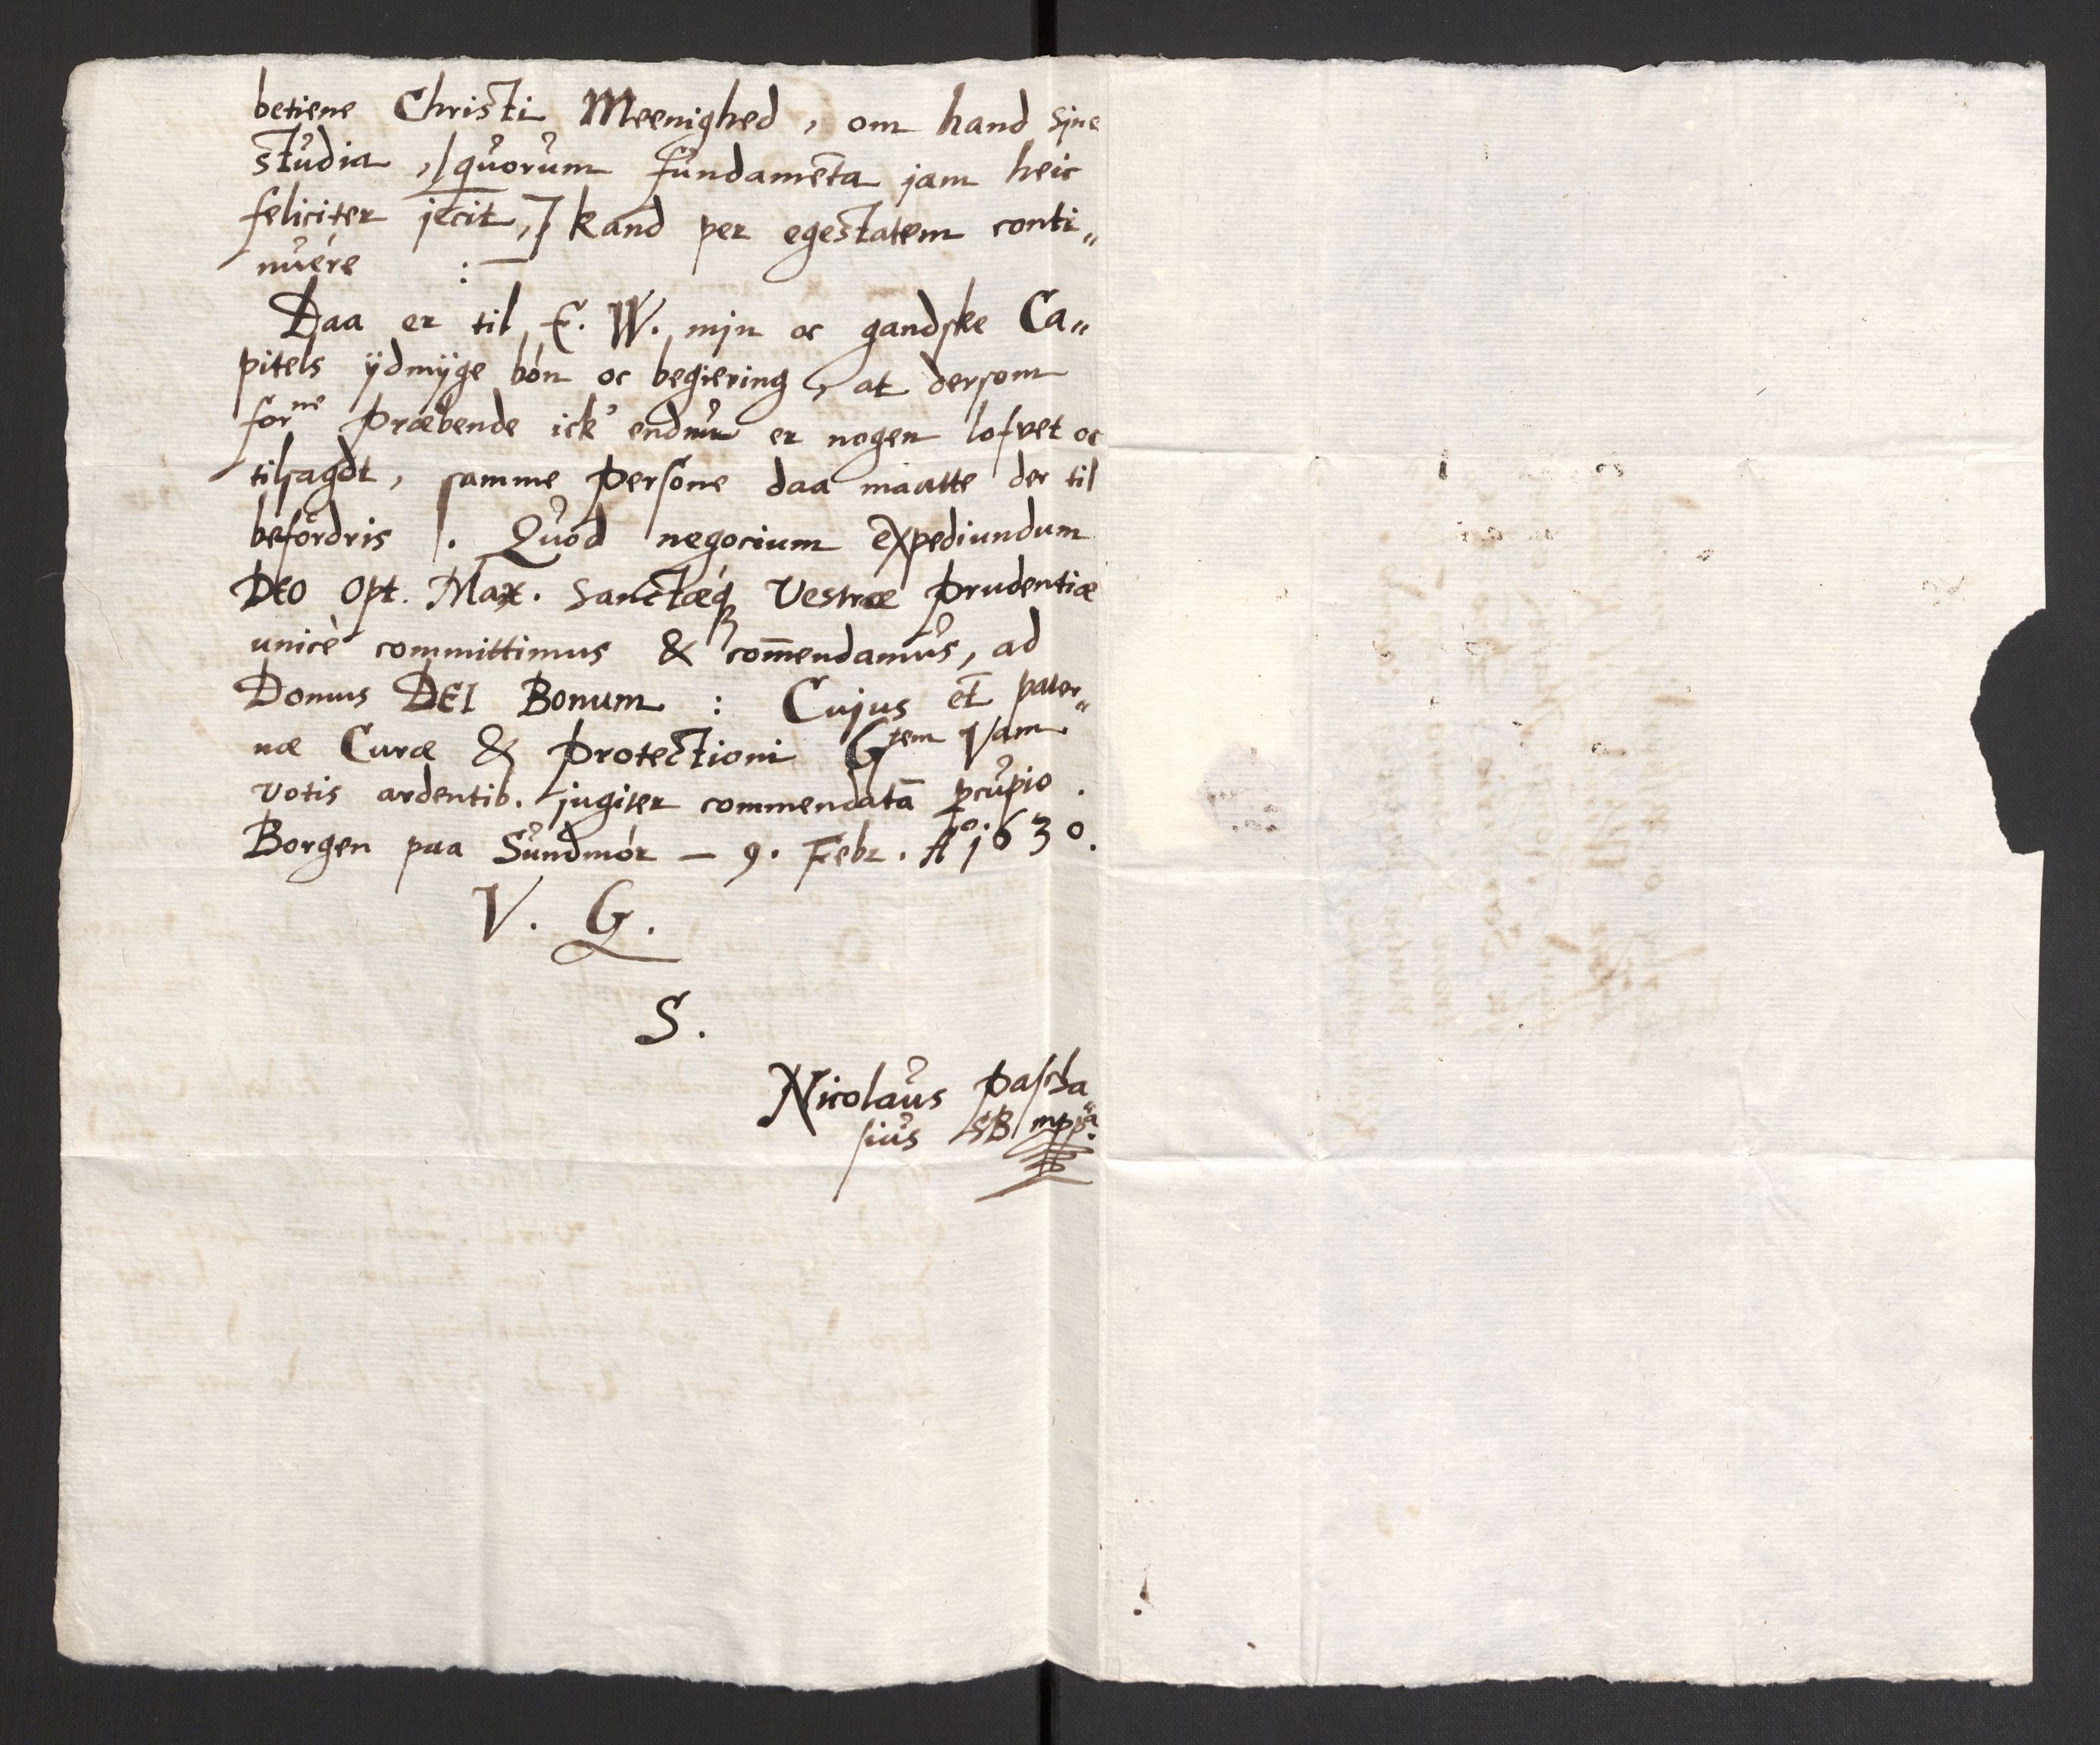 betiene Christi Meenighed, om hand sjne
studia, [quorum fundameta jam heic
feliciter jecit,] kand per egestatem conti„
nuére :—
Daa er til E. W. mjn oc gandske Ca„
pitels ÿdmÿge bón oc begiering, at dersom
forne Præbende ick' endnu er nogen lofvet oc
tilsagdt, samme Persone daa maatte der til
befórdris. Quod negocium expediundum
DEO Opt. Max. Sanctæq́ꝫ Vestræ Prudentiæ
unicè committimus & com̄endamus, ad
Domus DEI Bonum : Cujus et pater„
næ Curæ & Protectioni Gtem Vam
votis ardentib. jugiter commendatā ꝑcupio.
Borgen paa Sundmór – 9. Febr. Ao 1630.
V. G.
S.
Nicolaus Pascha„
sius SB mppa.